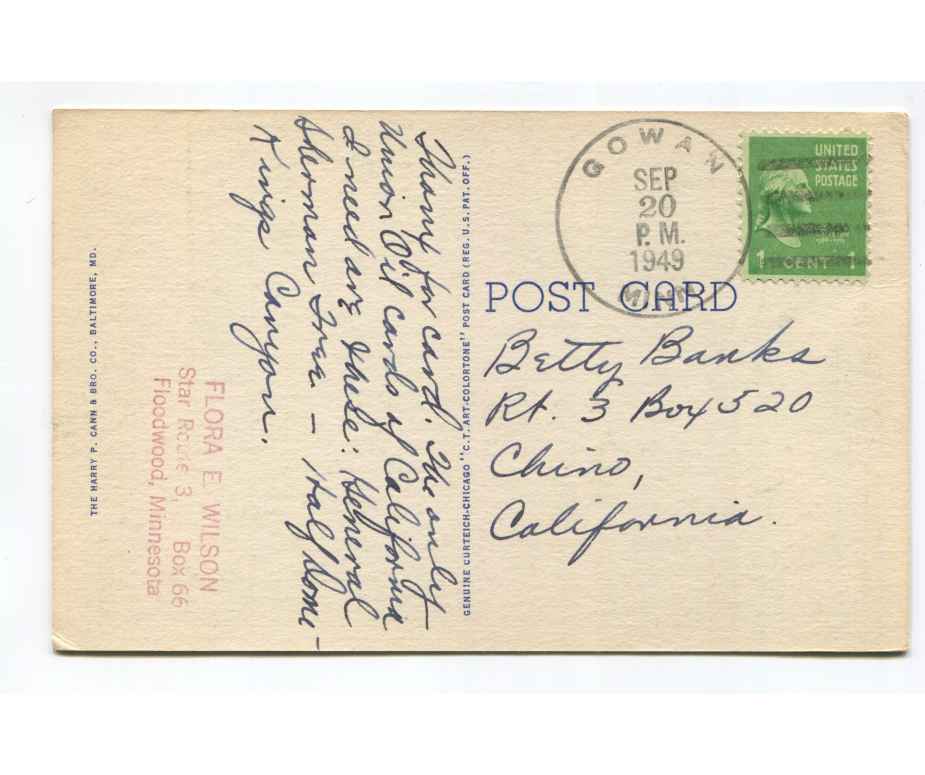 Thanx for card. The only
Union Oil cards of California
I need are these: General
Sherman Tree - Half Dome -
Kings Canyon.
FLORA E. WILSON
Star Route 3, Box 66
Floodwood, Minnesota
THE HARRY P. CANN & BRO. CO., BALTIMORE, MD.
GENUINE CURTEICH-CHICAGO "C.T. ART-COLORTONE" POST CARD (REG. U.S. PAT. OFF.)
GOWAN
SEP
20
P.M.
1949
MINN
UNITED
STATES
POSTAGE
1 CENT 1
POST CARD
Betty Banks
Rt. 3 Box 520
Chino,
California.